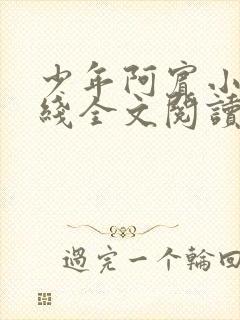 少年阿賓小
綫全文閱讀
過完一个輪回